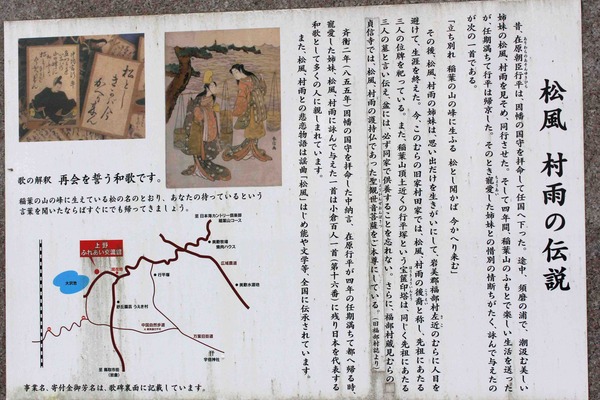 松風 村雨の伝説
昔、在原朝臣行平は、因幡の国守を拝命して任国へ下った。途中、須磨の浦で、潮汲む美しい
姉妹の松風、村雨を見そめ、同行させた。そして四年間、稲葉山のふもとで楽しい生活を送った
が、任期満ちて行平は帰京した。そのとき寵愛した姉妹との惜別の情断ちがたく、詠んで与えたの
が次の一首である。
「立ち別れ 稲葉の山の峰に生ふる 松とし聞かば 今かへり来む」
その後、松風、村雨の姉妹は、思い出だけを生きがいにして、岩美郡福部村左近のむらに人目を
避けて、生涯を終えた。今、このむらの旧家村田家では、松風、村雨の後裔と称し、先祖にあたる
三人の位牌を祀っている。また、稲葉山頂上近くの行平塚という宝篋印塔は、同じく先祖にあたる
三人の墓と言い伝え、盆には、必ず同家で供養することを忘れない。さらに、福部村蔵見むらの
貞信寺では、松風、村雨の護持仏であった聖観世音菩薩をご本尊にしている。(旧福部村誌より)
斉衡二年(八五五年)因幡の国守を拝命した中納言 在原行平が四年の任期満ちて都へ帰る時、
寵愛した姉妹松風、村雨に詠んで与えた一首は小倉百人一首(第十六番)に残り日本を代表する
和歌として多くの人に親しまれています。
また、松風、村雨との悲恋物語は謡曲「松風」はじめ能や文学等、全国に伝承されています。
松とし
きかば今
かへりこむ
歌の解釈 再会を誓う和歌です。
稲葉の山の峰に生えている松の名のとおり、あなたの待っているという
言葉を聞いたならばすぐにでも帰ってきましょう。
至 日本海カントリー倶楽部
上野
ふれあい史蹟辺
行平塚
広域農道
中国自然歩道
宇倍神社
至 鳥取市街
事業名、寄付金御芳名は、歌碑裏面に記載しています。